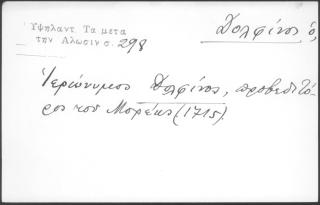 Ὑψηλαντ Τα μετα
την Αλωσιν σ. 298
Δολφίνος ὁ,
Ἱερώνυμος Δολφίνος, προβεδιτό-
ρος του Μορέως (1715).